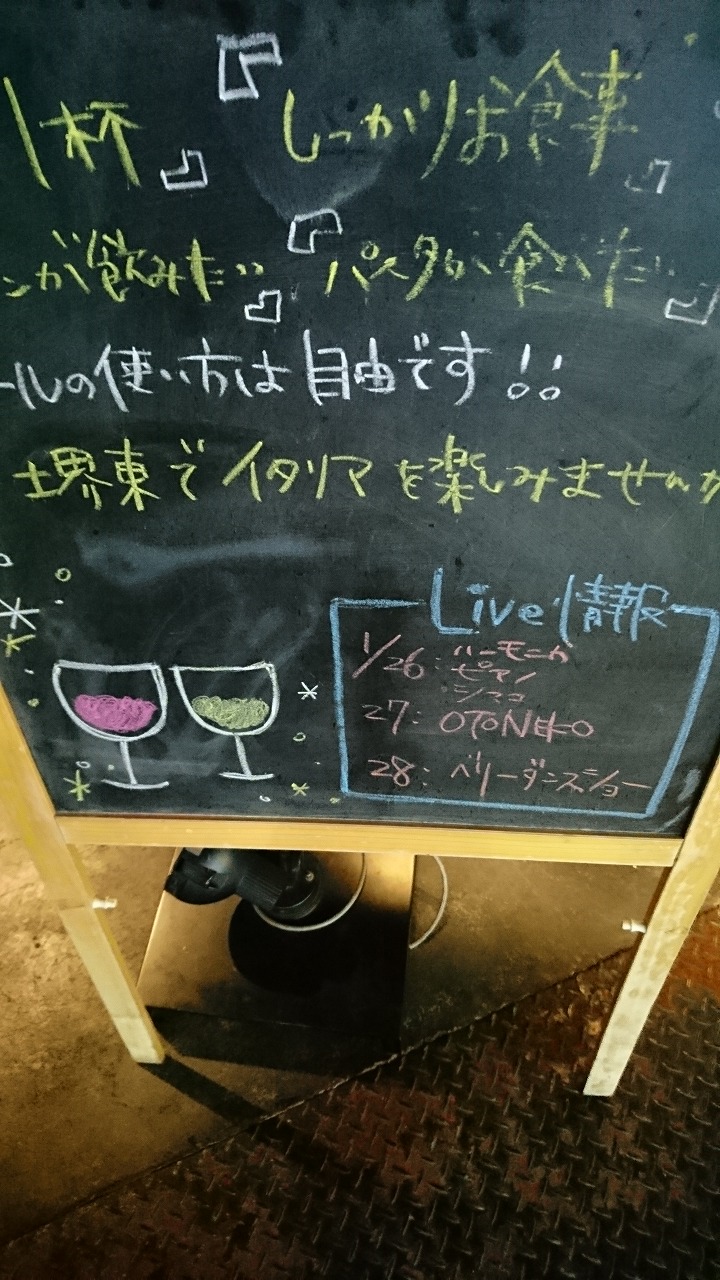 1杯」 『しっかりお食事」
ンが飲みたい」 『パスタが食べたい」
ールの使い方は自由です!!
堺東でイタリアを楽しみませんか
Live情報
1/26: ハーモニカ
ピアノ
27:
28: ベリーダンスショー